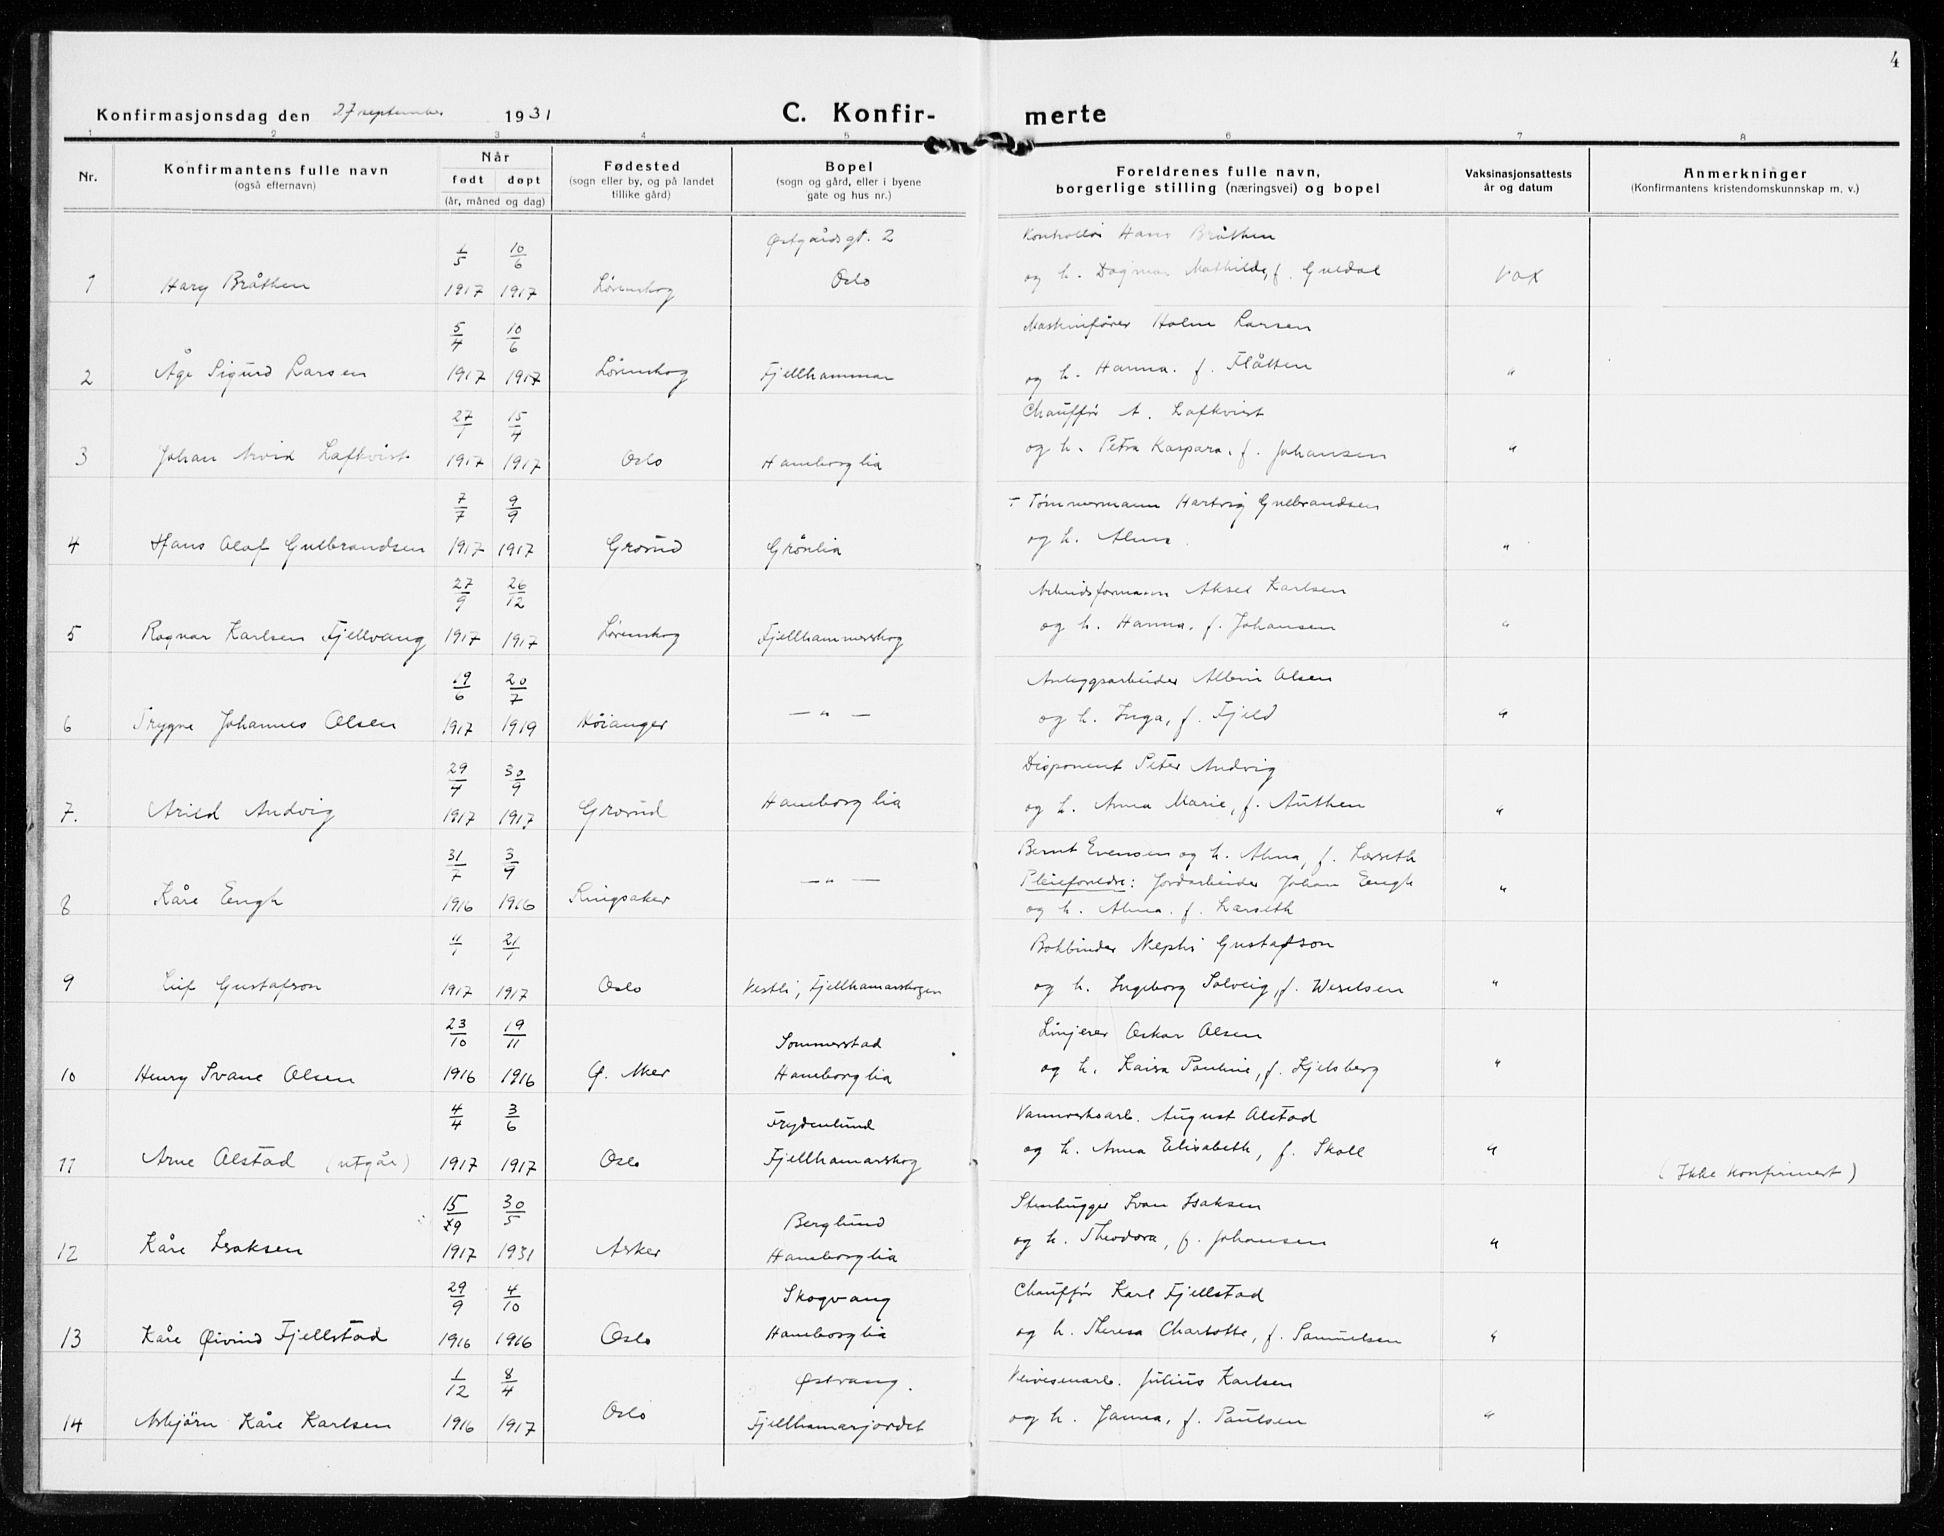 4
Konfirmasjonsdag den 27 september 1931
C. Konfir- merte
1 2 3 4 5 6 7 8
Nr.
Konfirmantens fulle navn
(også efternavn)
Når
født døpt
(år, måned og dag)
Fødested
(sogn eller by, og på landet
tillike gård)
Bopel
(sogn og gård, eller i byene
gate og hus nr.)
Foreldrenes fulle navn,
borgerlige stilling (næringsvei) og bopel
Vaksinasjonsattests
år og datum
Anmerkninger
(Konfirmantens kristendomskunnskap m. v.)
1/5 10/6 Østgårdsgt. 2 Kontrollør Hans Bråthen
1 Hary Bråthen 1917 1917 Lørenskog Oslo og h. Dagmar Mathilde, f. Guldal vax
5/4 10/6 Maskinfører Holm Larsen
2 Åge Sigurd Larsen 1917 1917 Lørenskog Fjellhammar og h. Hanna. f. Flåtten "
27/1 15/4 Chauffør A. Lafkvist
3 Johan Arvid Lafkvist 1917 1917 Oslo Haneborglia og h. Petra Kaspara, f. Johansen "
7/7 9/9 ÷ Tømmermann Hartvig Gulbrandsen
4 Hans Olaf Gulbrandsen 1917 1917 Grorud Grønlia og h. Alma "
27/9 26/12 Arbeidsformann Aksel Karlsen
5 Ragnar Karlsen Fjellvang 1917 1917 Lørenskog Fjellhammerskog og h. Hanna, f. Johansen "
19/6 20/7 Anleggsarbeider Albin Olsen
6 Trygve Johannes Olsen 1917 1919 Høianger — " — og h. Inga, f. Fjeld "
29/7 30/9 Disponent Peter Andvig
7. Arild Andvig 1917 1917 Grorud Haneborglia og h. Anna Marie, f. Authen "
31/7 3/9 Bernt Evensen og h. Alma, f. Larseth
Pleieforeldre: Jordarbeider Johan Eengh
8 Kåre Eengh 1916 1916 Ringsaker — " — og h. Alma. f. Larseth "
11/1 21/1 Bokbinder Nephi Gustafson
9 Leif Gustafson 1917 1917 Oslo Vestli, Fjellhamarskogen og h. Ingeborg Solveig, f. Weselsen "
23/10 19/11 Sommerstad Linjerer Oskar Olsen
10 Henry Svane Olsen 1916 1916 Ø. Aker Haneborglia og h. Kaisa Pauline, f. Kjelsberg "
4/4 3/6 Frydenlund Vannverksarb. August Alstad
11 Arne Alstad (utgår) 1917 1917 Oslo Fjellhamarskog og h. Anna Elisabeth, f. Skoll " (Ikke konfirmert)
15/9 30/5 Berglund Stenhugger Ivan Isaksen
12 Kåre Isaksen 1917 1931 Asker Haneborglia og h. Theodora, f. Johansen "
29/9 4/10 Skogvang Chauffør Karl Fjellstad
13 Kåre Øivind Fjellstad 1916 1916 Oslo Haneborglia og h. Theresa Charlotte, f. Samuelsen "
1/12 8/4 Østvang. Veivesenarb. Julius Karlsen
14 Asbjørn Kåre Karlsen 1916 1917 Oslo Fjellhamarjordet og h. Janna, f. Paulsen "